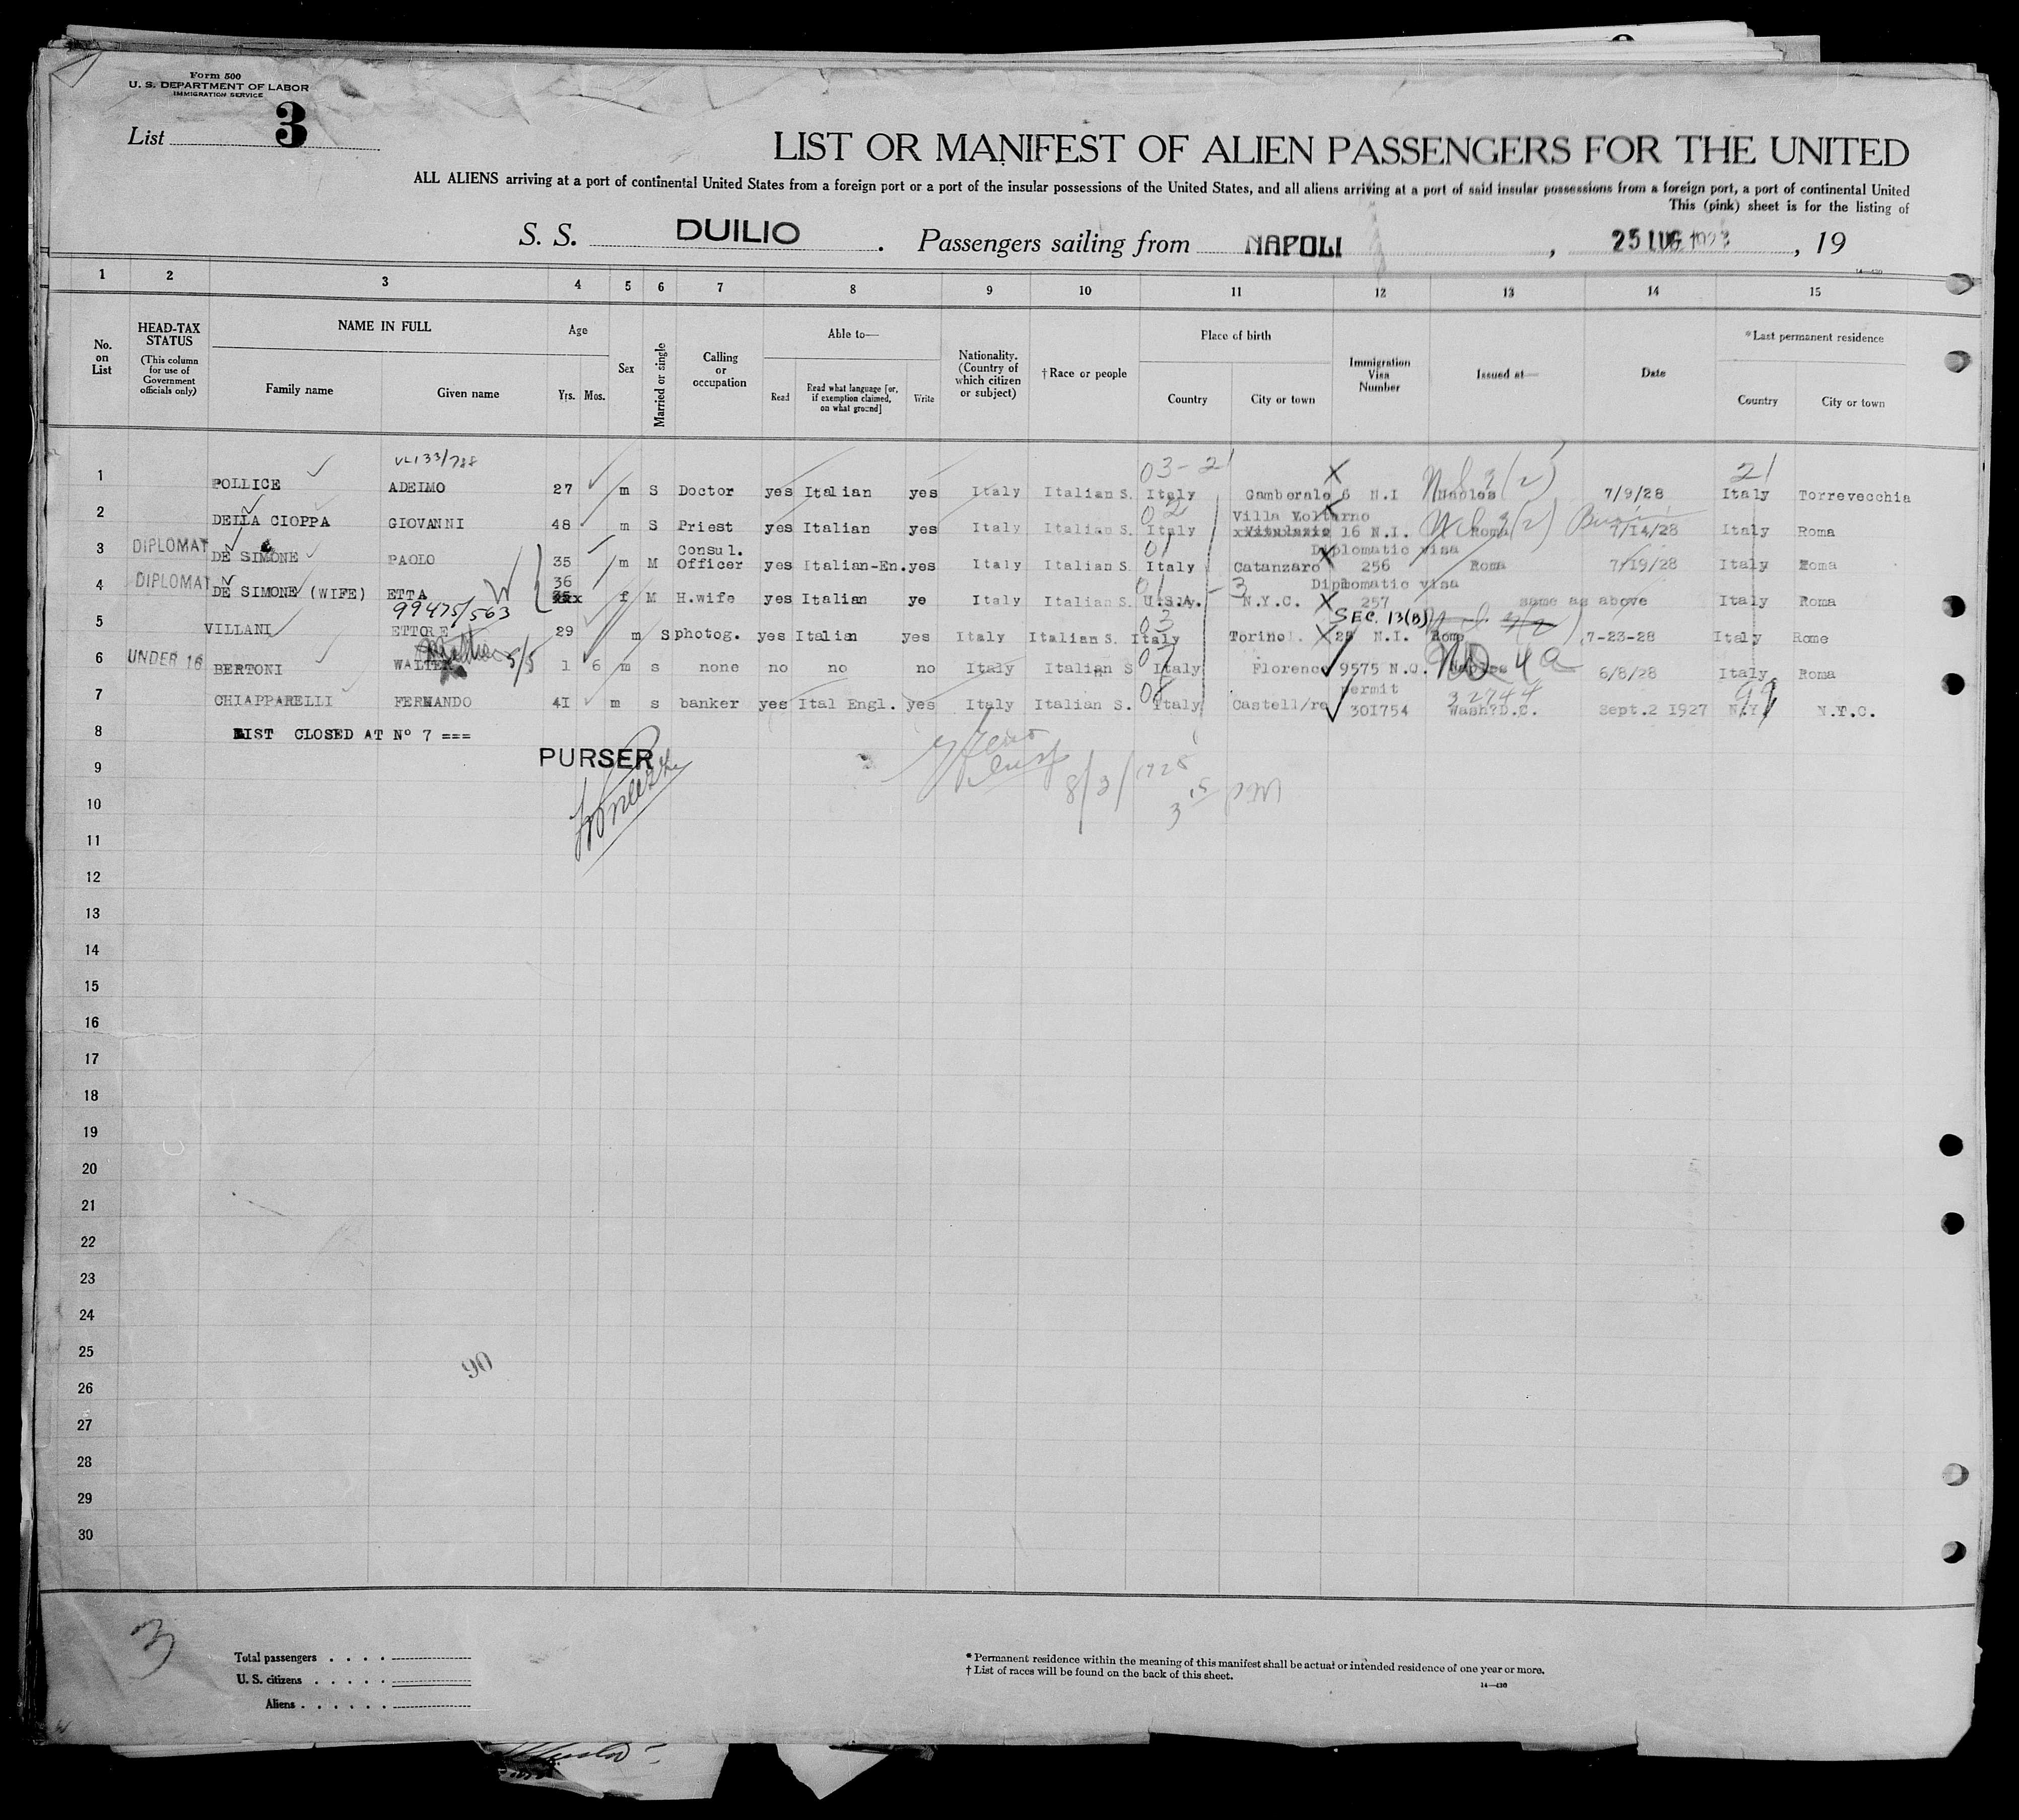 Form 500
U. S. DEPARTMENT OF LABOR
IMMIGRATION SERVICE
List 3
LIST OR MANIFEST OF ALIEN PASSENGERS FOR THE UNITED
ALL ALIENS arriving at a port of continental United States from a foreign port or a port of the insular possessions of the United States, and all aliens arriving at a port of said insular possessions from a foreign port, a port of continental United
This (pink) sheet is for the listing of
S. S. DUILIO . Passengers sailing from NAPOLI , 25 LUG , 19
14—430
1 2 3 4 5 6 7 8 9 10 11 12 13 14 15
No. on List
HEAD-TAX STATUS (This column for use of Government officials only)
NAME IN FULL
Family name Given name
Age
Yrs. Mos.
Sex
Married or single
Calling or occupation
Able to—
Read Read what language [or, if exemption claimed, on what ground] Write
Nationality. (Country of which citizen or subject)
†Race or people
Place of birth
Country City or town
Immigration Visa Number
Issued at—
Date
*Last permanent residence
Country City or town
03-21 21
1 POLLICE ADELMO 27 m S Doctor yes Italian yes Italy Italian S. Italy Gamberale 6 N.I Naples 7/9/28 Italy Torrevecchia
Villa Volturno
2 DELLA CIOPPA GIOVANNI 48 m S Priest yes Italian yes Italy Italian S. Italy 16 N.I. Roma 7/14/28 Italy Roma
Consul. Diplomatic visa
3 DIPLOMAT DE SIMONE PAOLO 35 m M Officer yes Italian-En. yes Italy Italian S. Italy Catanzaro 256 Roma 7/19/28 Italy Roma
36 Diplomatic visa
4 DIPLOMAT DE SIMONE (WIFE) ETTA f M H.wife yes Italian ye Italy Italian S. U.S.A. N.Y.C. 257 same as above Italy Roma
99475/563 SEC. 13(B)
5 VILLANI ETTORE 29 m S photog. yes Italian yes Italy Italian S. Italy Torino N.I. Rome 7-23-28 Italy Rome
6 UNDER 16 BERTONI WALTER 1 6 m s none no no no Italy Italian S Italy Florence 9575 N.Q. Naples ND 4a 6/8/28 Italy Roma
permit 32744 99
7 CHIAPPARELLI FERNANDO 41 m s banker yes Ital Engl. yes Italy Italian S. Italy Castell/re 301754 Wash?D.C. Sept.2 1927 N.Y. N.Y.C.
8 LIST CLOSED AT Nº 7 ===
PURSER
9
8/3/1928
3 15 PM
10
11
12
13
14
15
16
17
18
19
20
21
22
23
24
25
90
26
27
28
29
30
3
Total passengers
U. S. citizens
Aliens
* Permanent residence within the meaning of this manifest shall be actual or intended residence of one year or more.
† List of races will be found on the back of this sheet.
14—430